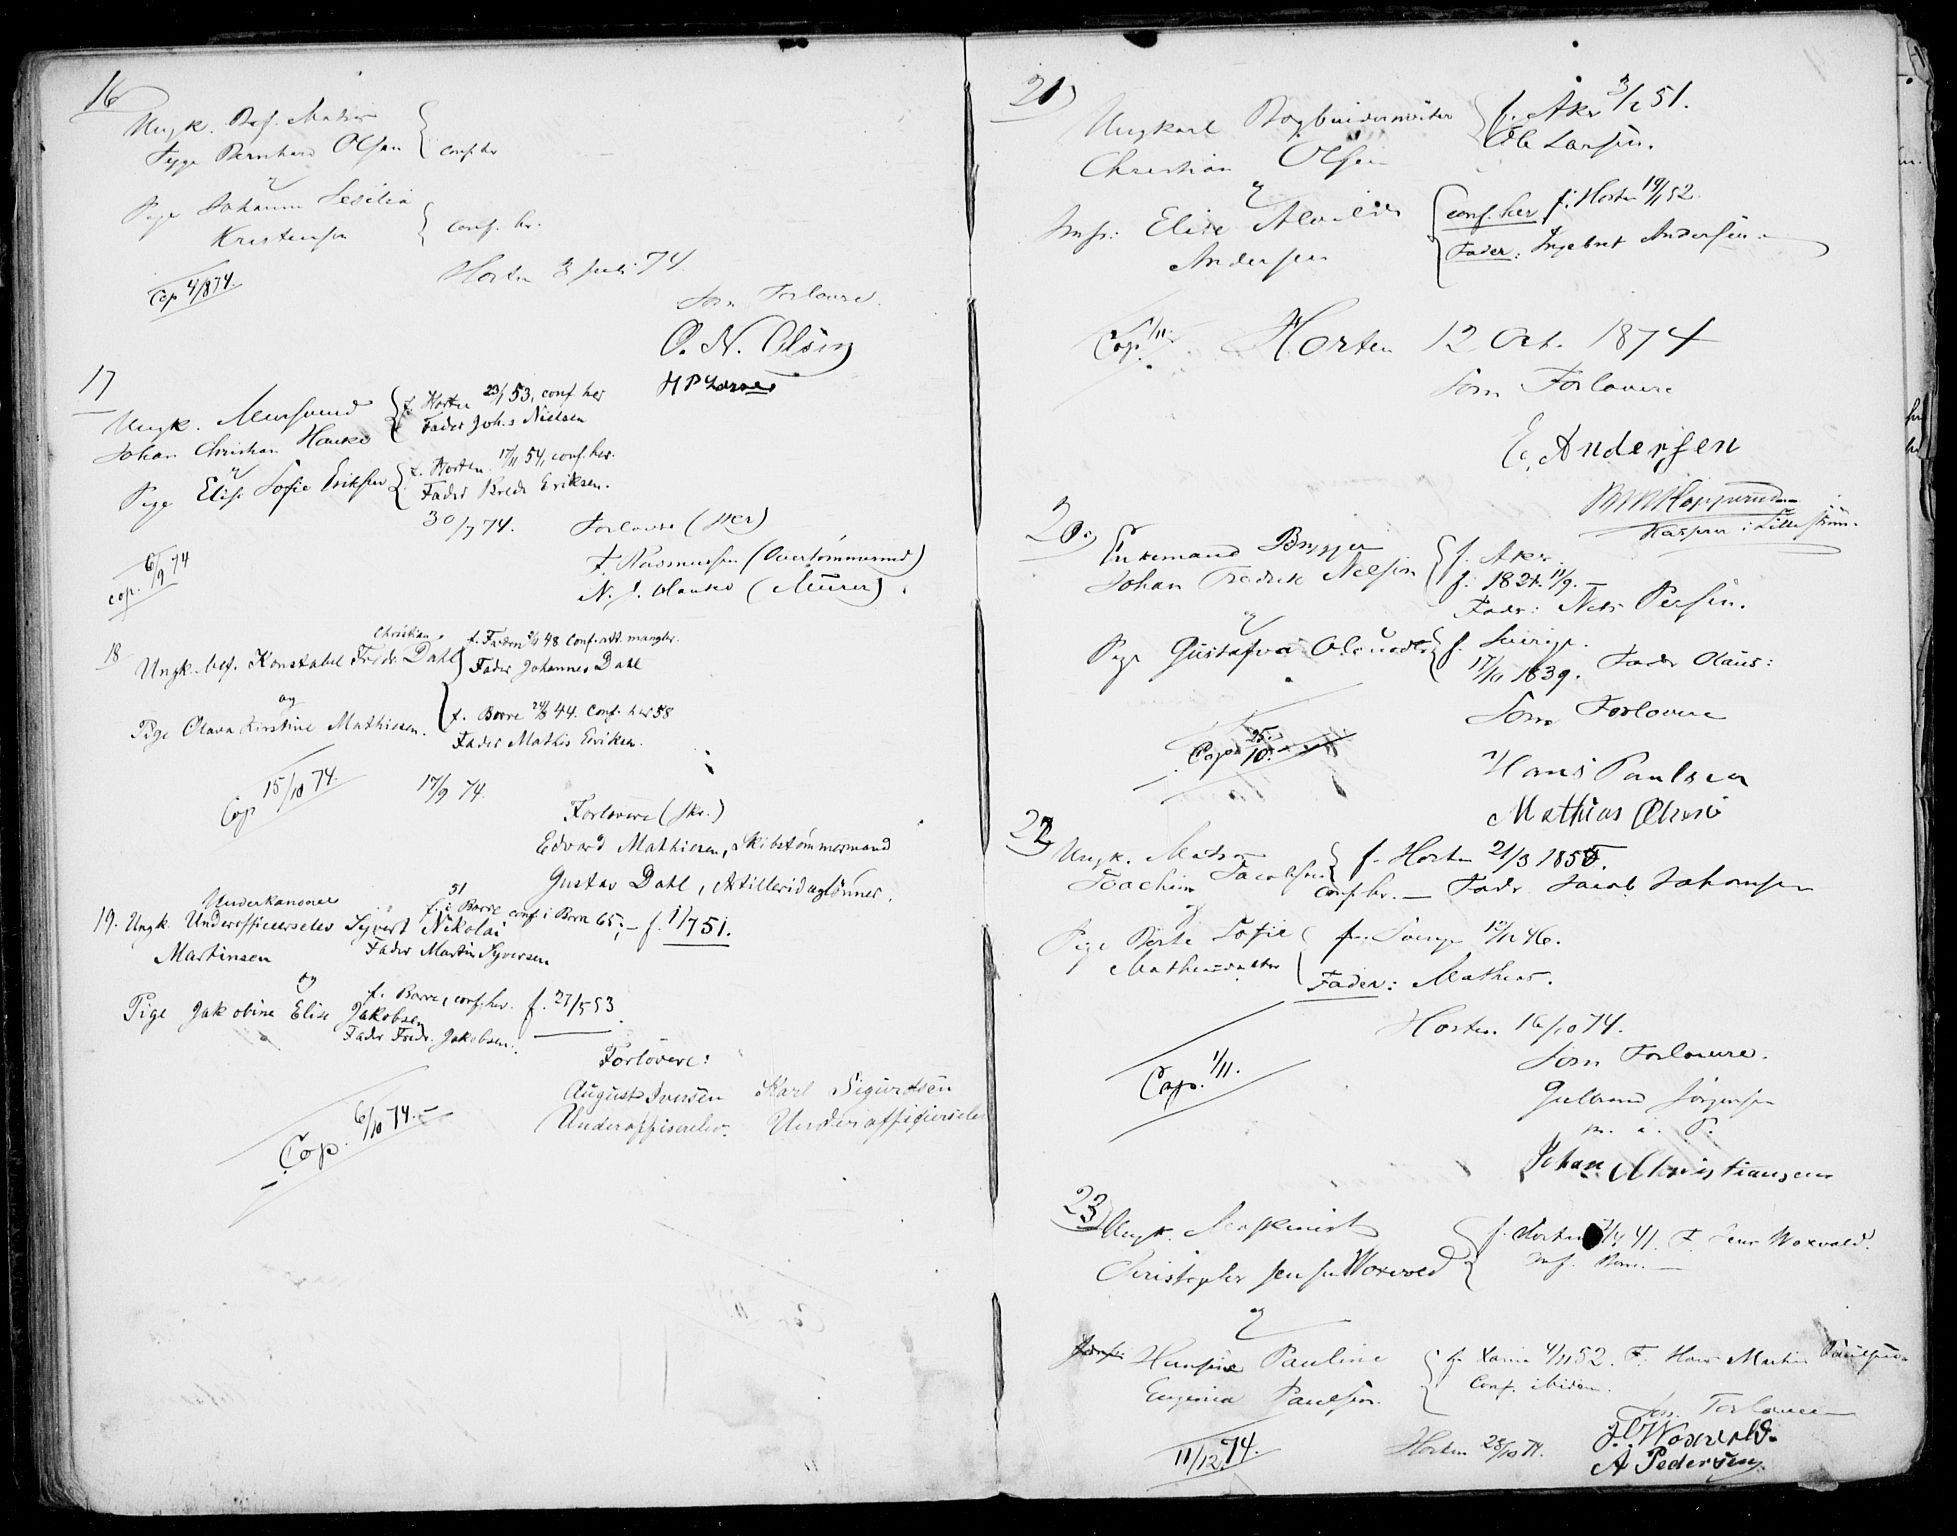 16
Ungk. Bef. Matros
Tygge Bernhard Olsen } conf. her
og
Pige Johanne Cesilia
Kristensen } conf. her.
Cop 4/8 74.
Horten 3 Juli 74.
Som Forlovere.
O. N. Olsen
H P Larsen
17
Ungk.
Johan Christian Hanke
f. Horten 23/1 53, conf. her
Fader Johs Nielsen
og
Pige Elise Sofie Eriksen
f. Horten 17/11 54, conf. her.
Fader Brede Eriksen.
30/7 74. Forlovere (skr)
F. Rasmussen (Overtømmermd)
N. J. Hanke (Murer).
cop. 6/9 74
18
Christian
Ungk. bef. Konstabel Fredr. Dahl
48 Conf. att. mangler.
Fader Johannes Dahl
og
Pige Olava Kirstine Mathiesen.
f. Borre 24/8 44. Conf. her 58
Fader Mathis Eriksen.
Cop 15/10 74.
17/9 74.
Forlovere (skr.)
Edvard Mathiesen, Skibstømmermand
Gustav Dahl, Artilleridagl&oslash;nner.
Underkanoner
19. Ungk. Underofficerselev Syvert Nikolai
Martinsen
f. i Borre 51 conf. i Borre 65; - f. 1/7 51.
Fader Martin Syversen
og
Pige Jakobine Elise Jakobsen
f. Borre, conf. her. f. 27/5 53.
Fader Fredr. Jakobsen.
Forlovere:
August Iversen Karl Sigurdsen
Underoffiserelev. Underoffiserselev
Cop. 6/10 74.
21)
Ungkarl Bogbindermester
Christian Olsen
f. Aker 3/2 51.
Ole Larsen.
og
Jmfr: Elise Alvilde
Andersen
conf. her f. Horten 19/1 52.
Fader: Ingebret Andersen.
Cop. 1/11.
Horten 12 Oct. 1874
Som Forlovere
E. Andersen
Kasserer i Lillestrøm.
20)
Enkemand Brygger
Johan Fredrik Nelsen
f. Aker.
f. 1821. 1/9.
Fader: Nels Persen.
og
Pige Gustafva
f. Sverige.
17/10 1839. Fader Olaus:
Som Forlovere
Cop. 25/10.
Hans Paulsen
Mathias Olsen
22
Ungk. Matros
Joachim Jacobsen
f. Horten 21/3 1850.
conf. her. — Fader Jacob Johansen
og
Pige Berte Sofie
Mathiasdatter
f. Sverige 12/12 46.
Fader: Mathias.
Horten 16/10 74.
Som Forlovere.
Gulbrand Jørgensen
m. i. P.
Johan Christiansen
Cop. 1/11.
23)
Ungk. Maskinist
Christopher Jensen Woxvold
f. Horten 41. F. Jens Woxvold.
Conf. Borre. —
og
Jomfr. Hansine Pauline
Eugenia Paulsen.
f. 4/11 52. F. Hans Martin Paulsen
Conf. ibidem.
Som Forlovere
11/12 74.
Horten 28/10 74.
J. Woxvold.
A. Pedersen.